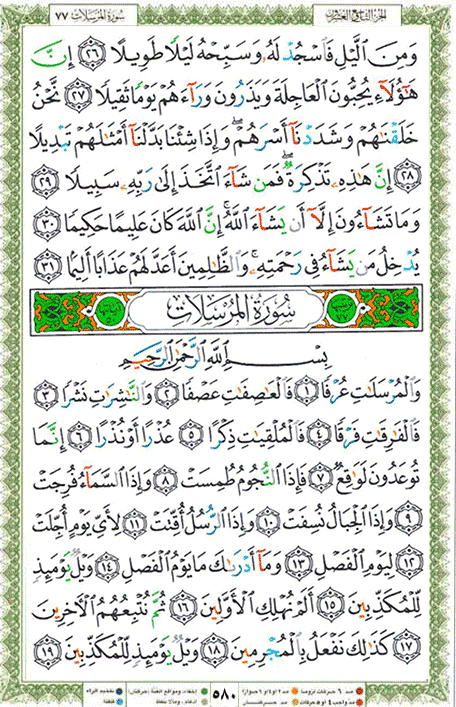 سورة المرسلات ٧٧ الجزء التاسع والعشرون
وَمِنَ ٱلَّيْلِ فَٱسْجُدْ لَهُۥ وَسَبِّحْهُ لَيْلًا طَوِيلًا ٢٦ إِنَّ
هَٰٓؤُلَآءِ يُحِبُّونَ ٱلْعَاجِلَةَ وَيَذَرُونَ وَرَآءَهُمْ يَوْمًا ثَقِيلًا ٢٧ نَّحْنُ
خَلَقْنَٰهُمْ وَشَدَدْنَآ أَسْرَهُمْ ۖ وَإِذَا شِئْنَا بَدَّلْنَآ أَمْثَٰلَهُمْ تَبْدِيلًا
٢٨ إِنَّ هَٰذِهِۦ تَذْكِرَةٌ ۖ فَمَن شَآءَ ٱتَّخَذَ إِلَىٰ رَبِّهِۦ سَبِيلًا ٢٩
وَمَا تَشَآءُونَ إِلَّآ أَن يَشَآءَ ٱللَّهُ ۚ إِنَّ ٱللَّهَ كَانَ عَلِيمًا حَكِيمًا ٣٠
يُدْخِلُ مَن يَشَآءُ فِى رَحْمَتِهِۦ ۚ وَٱلظَّٰلِمِينَ أَعَدَّ لَهُمْ عَذَابًا أَلِيمًۢا ٣١
سُورَةُ الْمُرْسَلَاتِ
بِسْمِ ٱللَّهِ ٱلرَّحْمَٰنِ ٱلرَّحِيمِ
وَٱلْمُرْسَلَٰتِ عُرْفًا ١ فَٱلْعَٰصِفَٰتِ عَصْفًا ٢ وَٱلنَّٰشِرَٰتِ نَشْرًا ٣
فَٱلْفَٰرِقَٰتِ فَرْقًا ٤ فَٱلْمُلْقِيَٰتِ ذِكْرًا ٥ عُذْرًا أَوْ نُذْرًا ٦ إِنَّمَا
تُوعَدُونَ لَوَٰقِعٌ ٧ فَإِذَا ٱلنُّجُومُ طُمِسَتْ ٨ وَإِذَا ٱلسَّمَآءُ فُرِجَتْ
٩ وَإِذَا ٱلْجِبَالُ نُسِفَتْ ١٠ وَإِذَا ٱلرُّسُلُ أُقِّتَتْ ١١ لِأَىِّ يَوْمٍ أُجِّلَتْ
١٢ لِيَوْمِ ٱلْفَصْلِ ١٣ وَمَآ أَدْرَىٰكَ مَا يَوْمُ ٱلْفَصْلِ ١٤ وَيْلٌ يَوْمَئِذٍ
لِّلْمُكَذِّبِينَ ١٥ أَلَمْ نُهْلِكِ ٱلْأَوَّلِينَ ١٦ ثُمَّ نُتْبِعُهُمُ ٱلْءَاخِرِينَ
١٧ كَذَٰلِكَ نَفْعَلُ بِٱلْمُجْرِمِينَ ١٨ وَيْلٌ يَوْمَئِذٍ لِّلْمُكَذِّبِينَ ١٩
٥٨٠